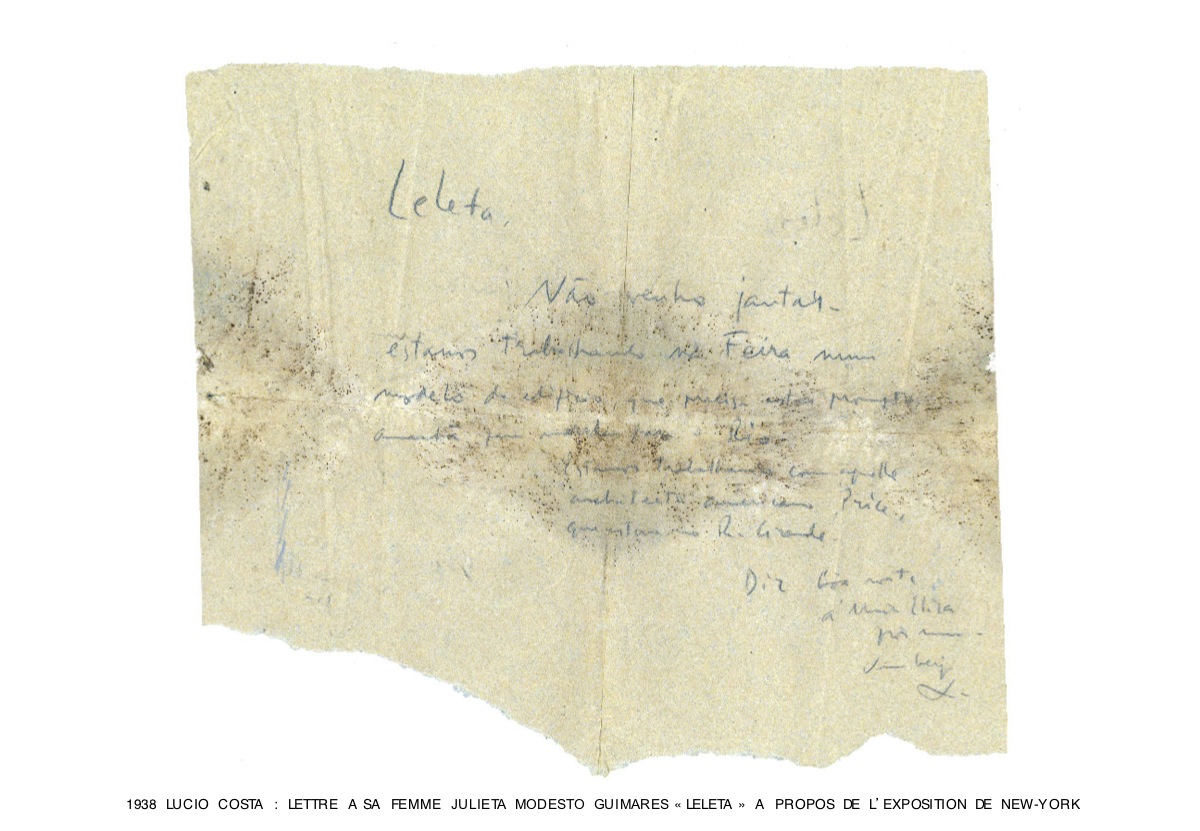 Leleta.
Não venho jantar.
estamos trabalhando na Feira num
modelo do edificio que precisa estar prompto
amanhã para o Rio.
Estamos trabalhando com aquelle
architecto americano Price,
que estava no R. Grande
Diz boa noite
á Maria Eliza
por mim.
Um beijo
L.
1938 LUCIO COSTA : LETTRE A SA FEMME JULIETA MODESTO GUIMARES « LELETA » A PROPOS DE L’EXPOSITION DE NEW-YORK